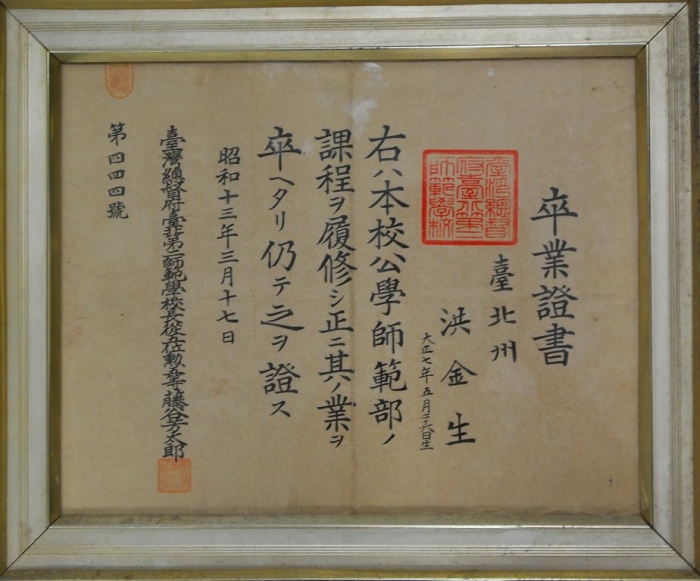 卒業證書
臺北州
洪金生
大正七年五月二六日生
臺灣總督
府臺北第二
師範學校
右ハ本校公學師範部ノ
課程ヲ履修シ正ニ其ノ業ヲ
卒ヘタリ仍テ之ヲ證ス
昭和十三年三月十七日
臺灣總督府臺北第二師範學校長從五位勳五等藤谷芳太郎
第四四四號